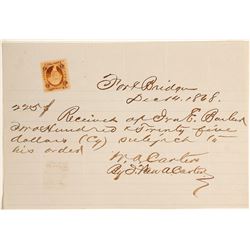 Fort Bridger
Dec 14. 1868.
225$ Received of Ira E.
Two Hundred & Twenty five
dollars (Cy) subject to
his order
W. A. Carter
By A Carter